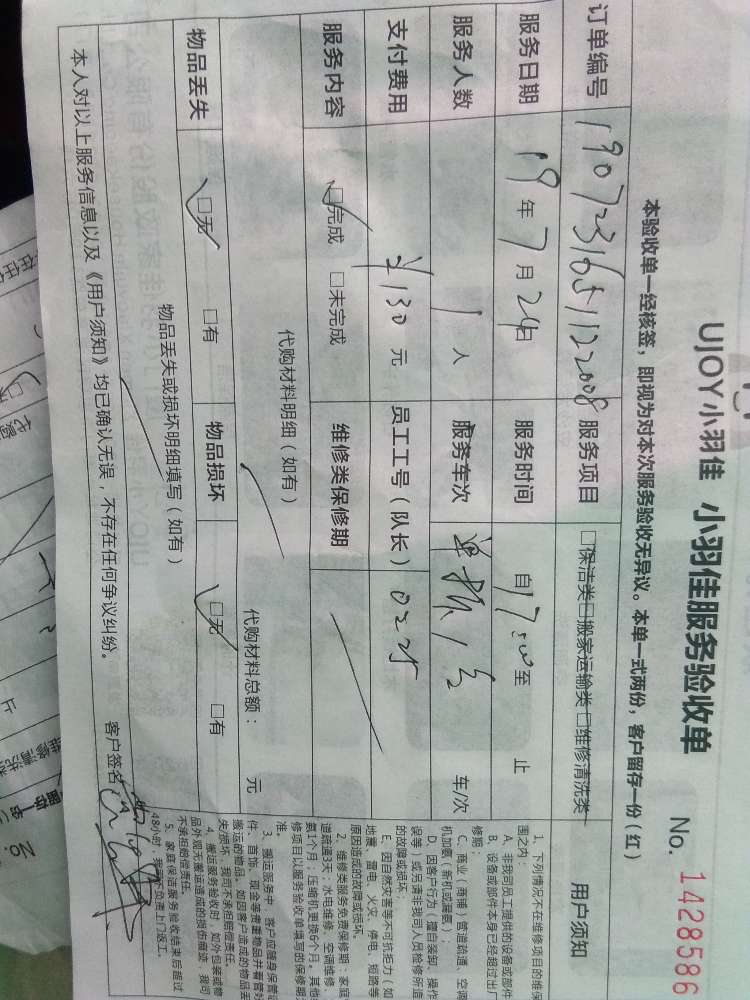 UJOY小羽佳 小羽佳服务验收单 No. 1428586
本验收单一经核签，即视为对本次服务验收无异议。本单一式两份，客户留存一份（红）
订单编号 190723165112208 服务项目 □保洁类□搬家运输类□维修清洗类 用户须知
服务日期 19年7月24日 服务时间 自17:00至 止
服务人数 1人 服务车次 车/次
支付费用 ¥130元 员工工号（队长） 0225
服务内容 □完成 □未完成 维修类保修期
代购材料明细（如有） 代购材料总额： 元
物品丢失 □无 □有 物品损坏 □无 □有
物品丢失或损坏明细填写（如有）
本人对以上服务信息以及《用户须知》均已确认无误，不存在任何争议纠纷。 客户签名
1、下列情况不在维修项目的维保
围之内：
A、非我司员工提供的设备或部件
B、设备或部件本身已经超过出厂
修期；
C、商业（商铺）管道疏通、空调
机加氨（新机或漏氨）；
D、因客户行为（擅自装卸、操作
误等）或另请非我司人员检修所造
的故障或损坏；
E、因自然灾害等不可抗拒力（如
地震、雷电、火灾、停电、短路等
原因造成的故障或损坏。
2、维修类服务免费保修期：家庭
道疏通3天；水电维修、空调维修、
氨1个月，压缩机更换6个月。其他
修项目以服务验收单填写的保修期
准。
3、搬运服务中，客户应随身保管证
件、首饰、现金等贵重物品并有管好
搬运的物品，如因客户造成的物品丢
失损坏，我司不承担赔偿责任。
4、搬运服务验收时，如外包装或物
品外观无搬运造成的损伤痕迹，我司
不承担赔偿责任。
5、家庭保洁服务验收结束后超过
48小时，我司不负责上门返工。